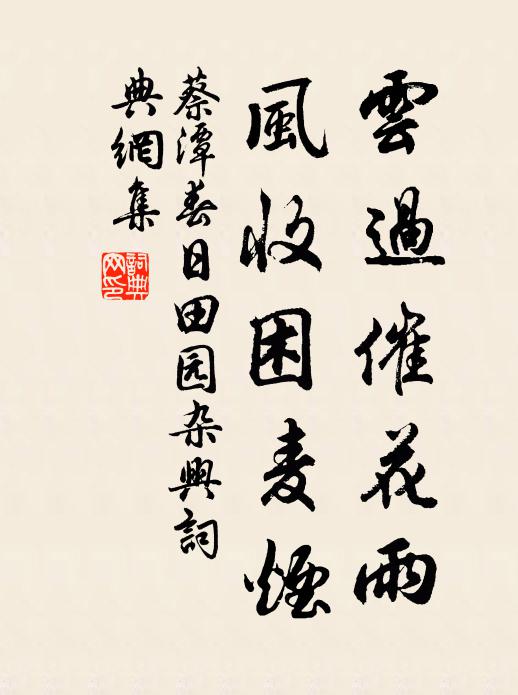 雲過催花雨
風收困麦煙
蔡潭春日田园杂興詞
典網集
詞典网印